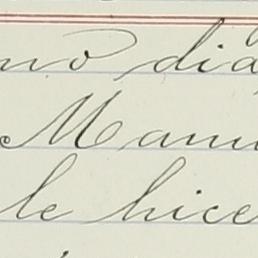 mo dia
Manu
le hice